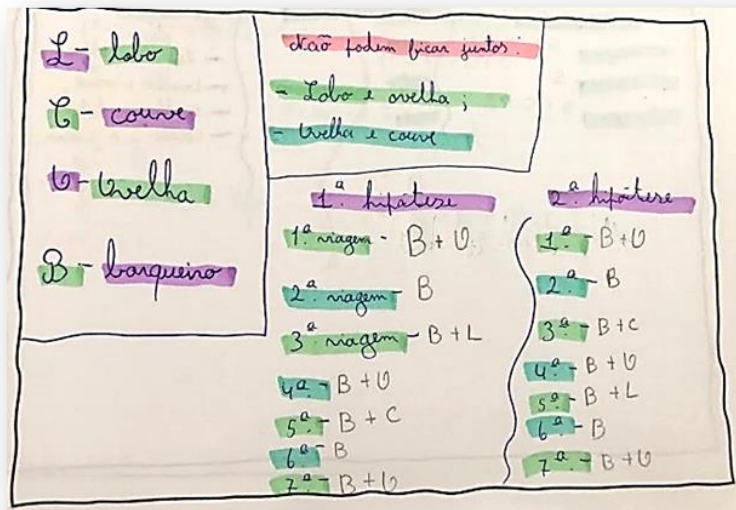 L - lobo
C - couve
O - Ovelha
B - barqueiro
Não podem ficar juntos:
- Lobo e ovelha;
- Ovelha e couve
1.ª hipótese
1.ª viagem - B + O
2.ª viagem - B
3.ª viagem - B + L
4.ª - B + O
5.ª - B + C
6.ª - B
7.ª - B + O
2.ª hipótese
1.ª - B + O
2.ª - B
3.ª - B + C
4.ª - B + O
5.ª - B + L
6.ª - B
7.ª - B + O